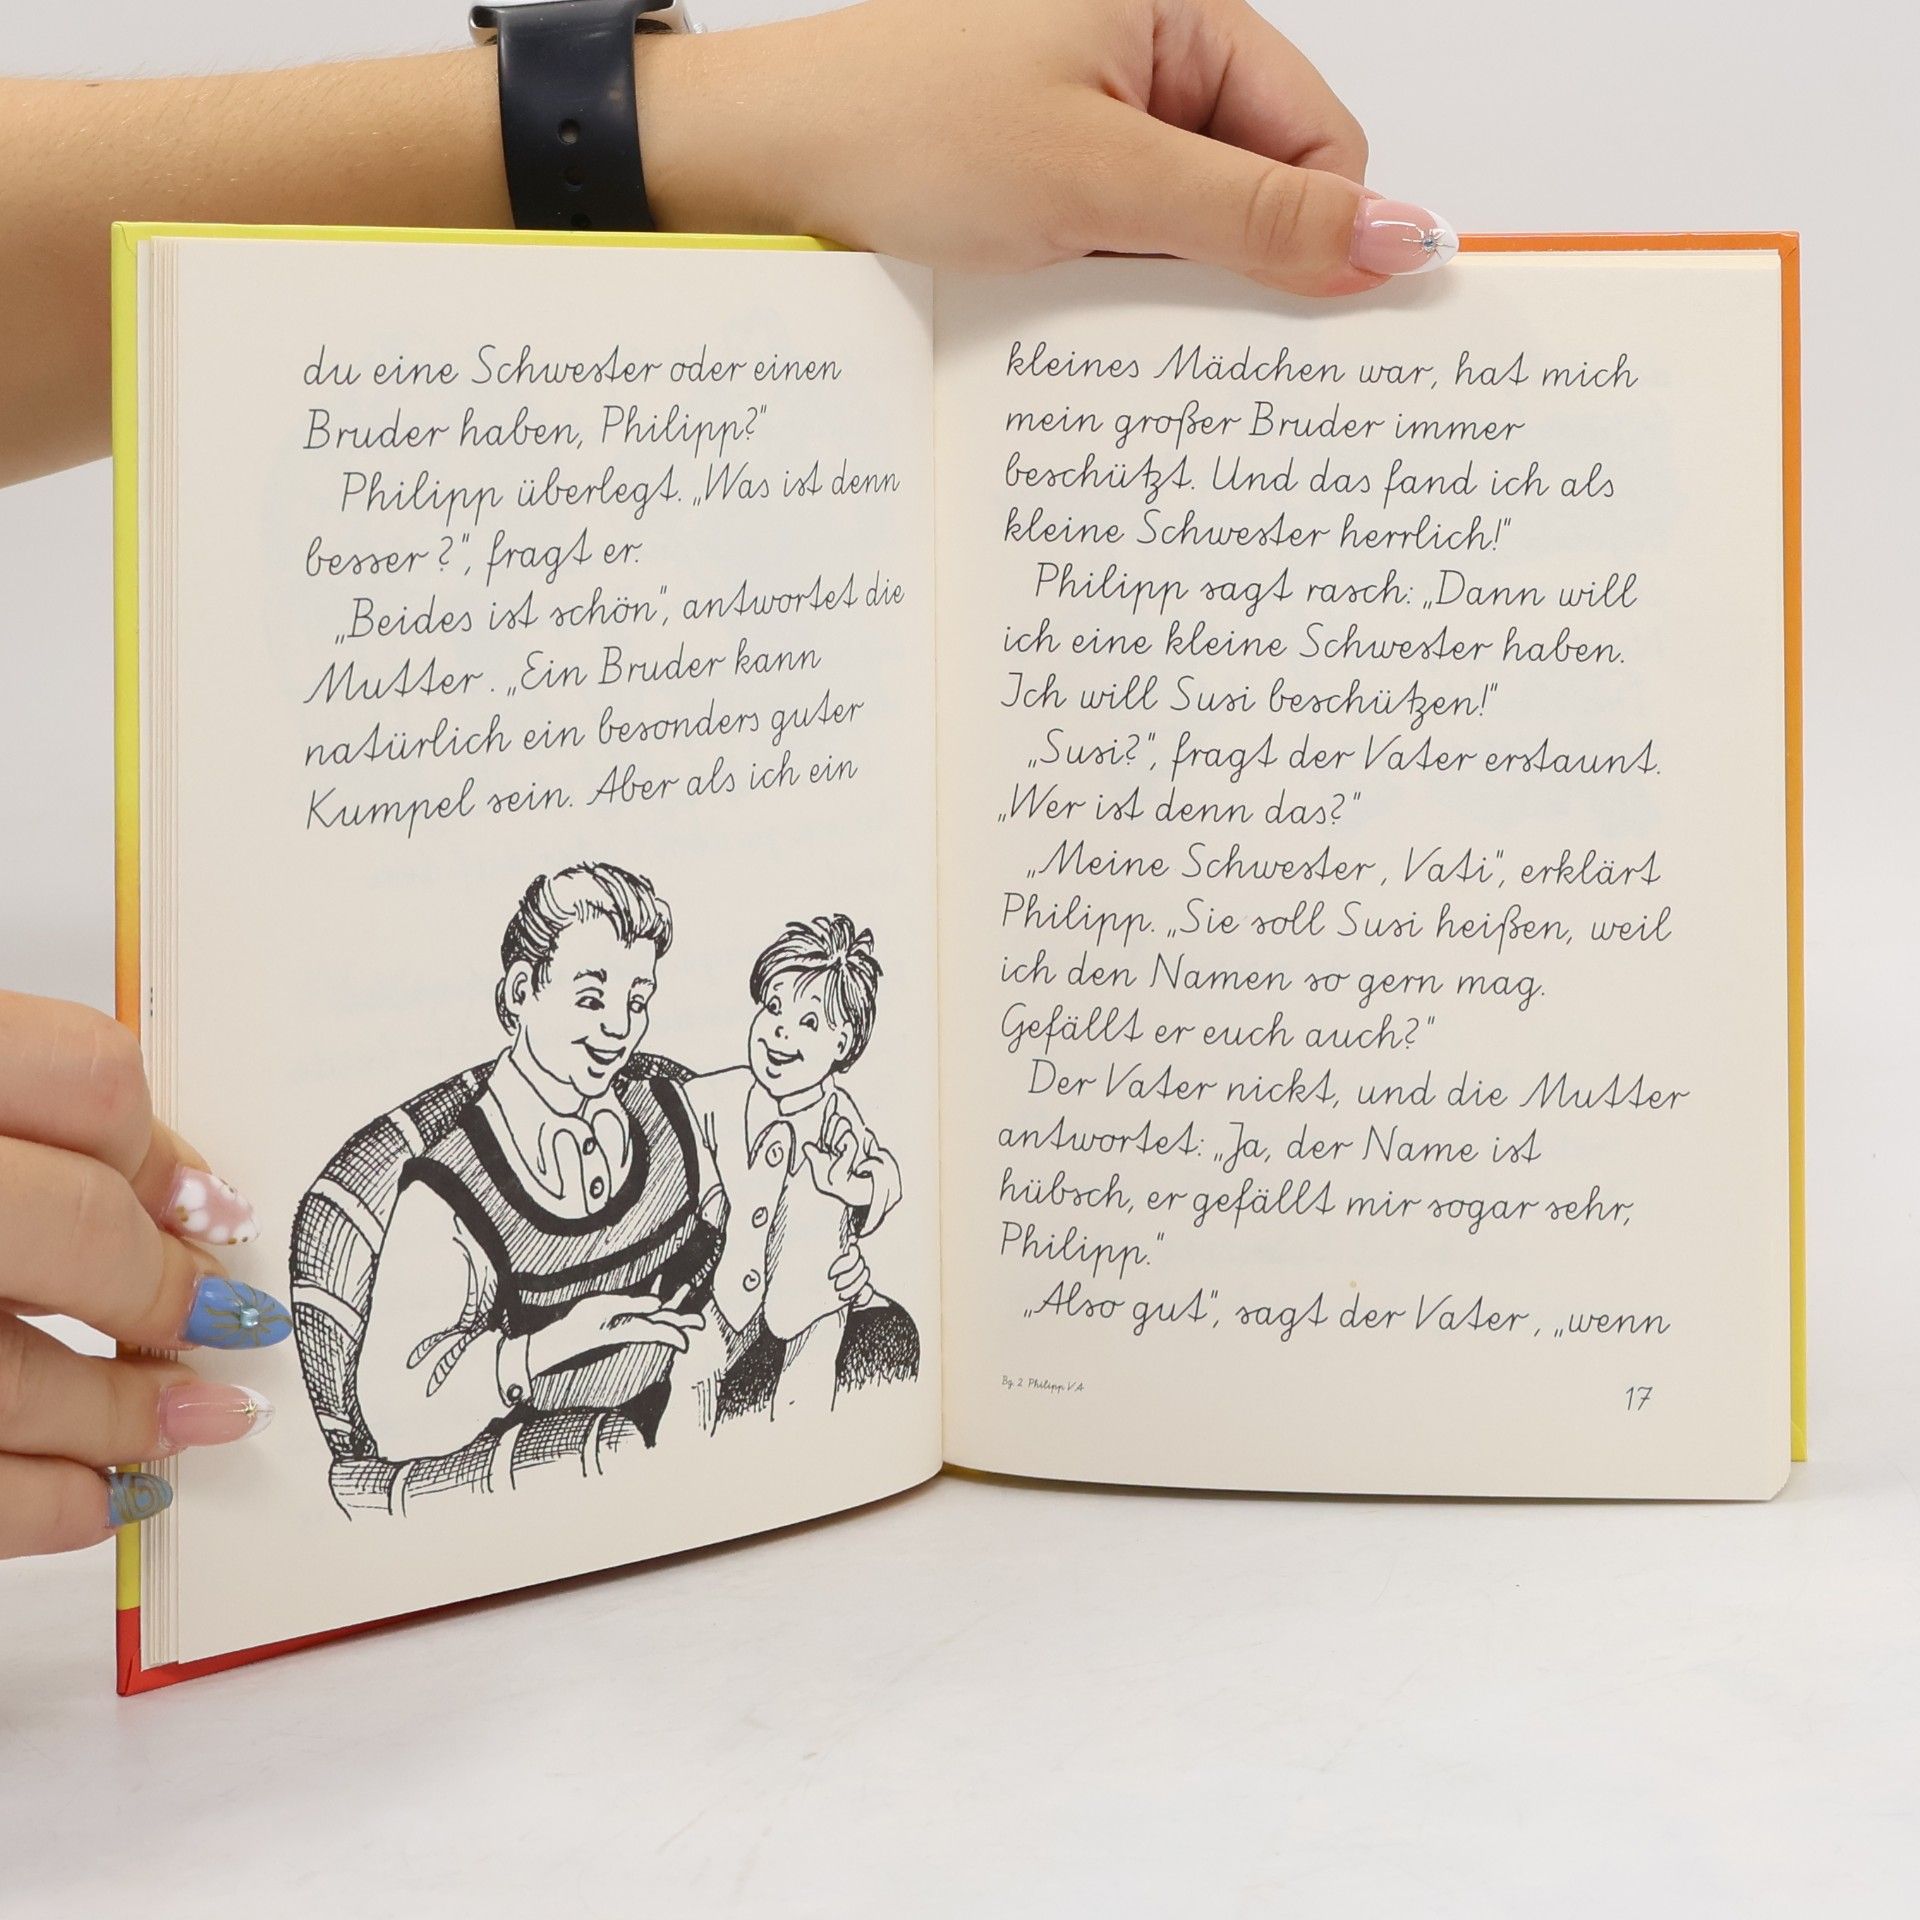 du eine Schwester oder einen
Bruder haben, Philipp?"
Philipp überlegt. „Was ist denn
besser?", fragt er.
„Beides ist schön", antwortet die
Mutter. „Ein Bruder kann
natürlich ein besonders guter
Kumpel sein. Aber als ich ein
kleines Mädchen war, hat mich
mein großer Bruder immer
beschützt. Und das fand ich als
kleine Schwester herrlich!"
Philipp sagt rasch: „Dann will
ich eine kleine Schwester haben.
Ich will Susi beschützen!"
„Susi?", fragt der Vater erstaunt.
„Wer ist denn das?"
„Meine Schwester, Vati", erklärt
Philipp. „Sie soll Susi heißen, weil
ich den Namen so gern mag.
Gefällt er euch auch?"
Der Vater nickt, und die Mutter
antwortet: „Ja, der Name ist
hübsch, er gefällt mir sogar sehr,
Philipp."
„Also gut", sagt der Vater, „wenn
Bg. 2 Philipp VA
17